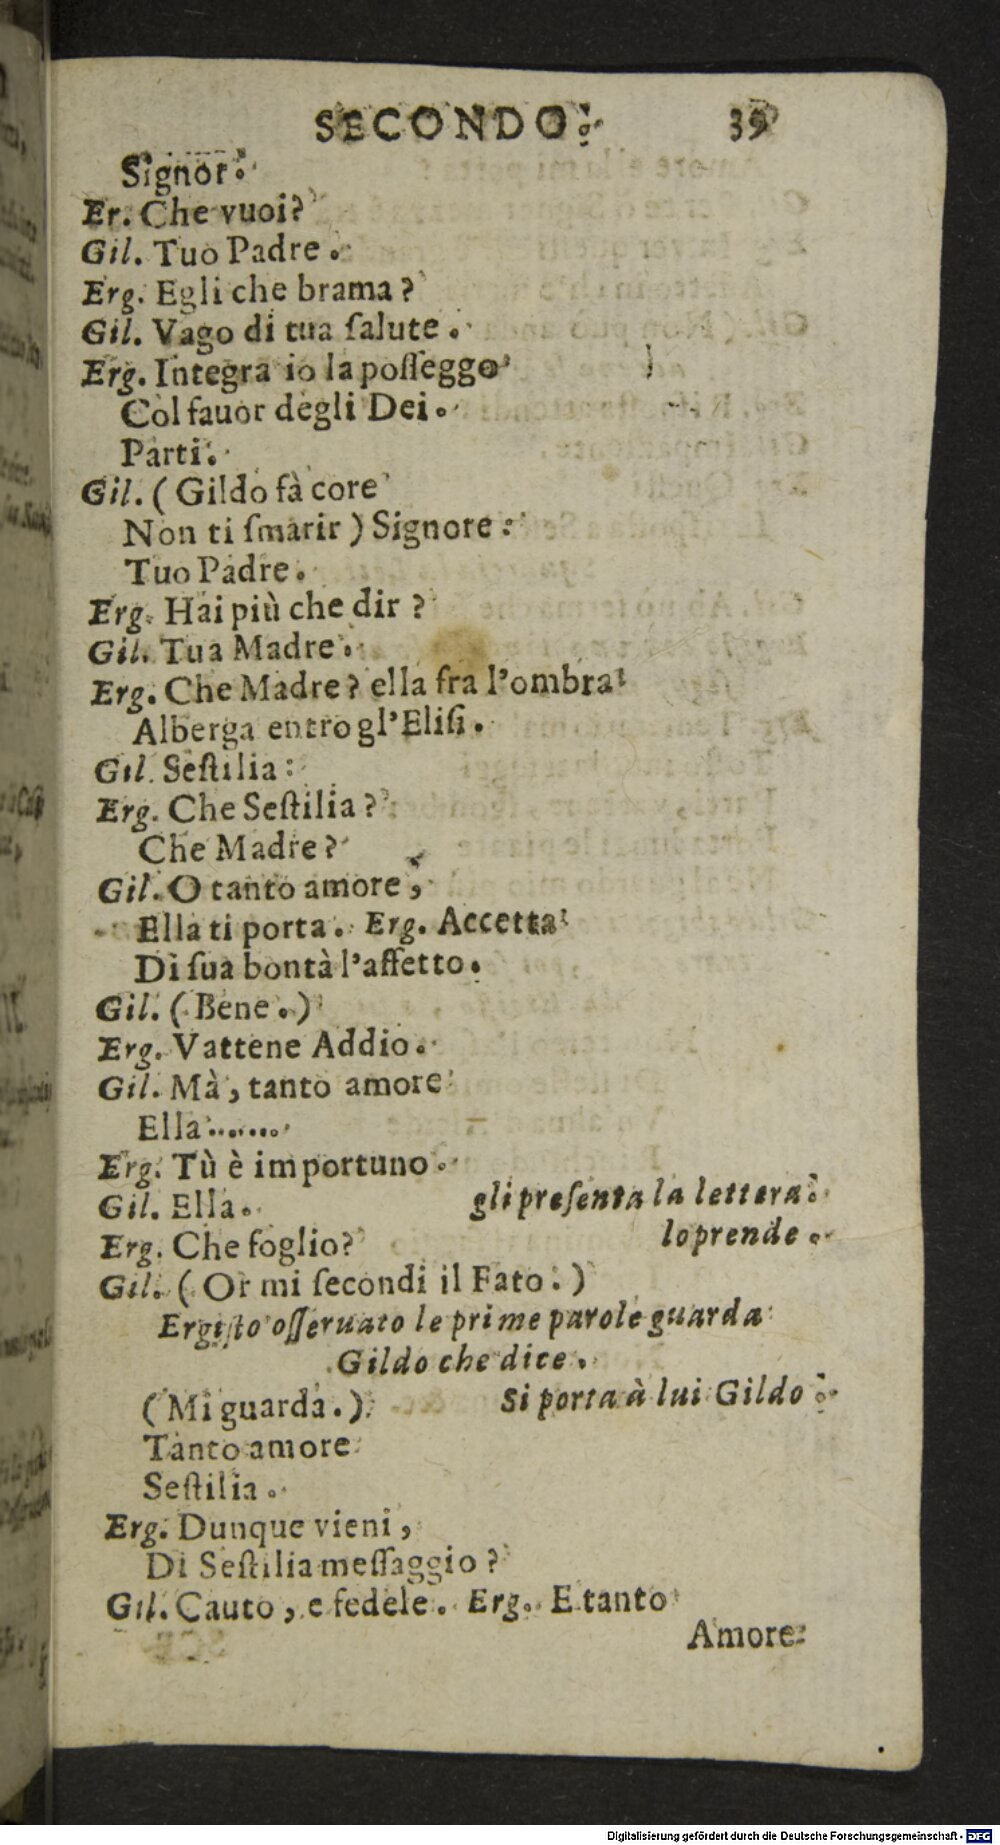 SECONDO. 39
Signor.
Er. Che vuoi?
Gil. Tuo Padre.
Erg. Egli che brama?
Gil. Vago di tua ſalute.
Erg. Integra io la poſſeggo
Col fauor degli Dei.
Parti.
Gil. ( Gildo fà core
Non ti ſmarir ) Signore:
Tuo Padre.
Erg. Hai più che dir ?
Gil. Tua Madre.
Erg. Che Madre? ella fra l'ombra
Alberga entro gl'Eliſi.
Gil. Seſtilia:
Erg. Che Seſtilia?
Che Madre?
Gil. O tanto amore,
Ella ti porta. Erg. Accetta
Di ſua bontà l'affetto.
Gil. (Bene.)
Erg. Vattene Addio.
Gil. Mà, tanto amore
Ella.......
Erg. Tù è importuno.
Gil. Ella. gli preſenta la lettera.
Erg. Che foglio? lo prende.
Gil. ( Or mi ſecondi il Fato. )
Ergiſto oſſeruato le prime parole guarda
Gildo che dice.
( Mi guarda. ) Si porta à lui Gildo.
Tanto amore
Seſtilia.
Erg. Dunque vieni,
Di Seſtilia meſſaggio?
Gil. Cauto, e fedele. Erg. E tanto
Amore
Digitalisierung gefördert durch die Deutsche Forschungsgemeinschaft - DFG